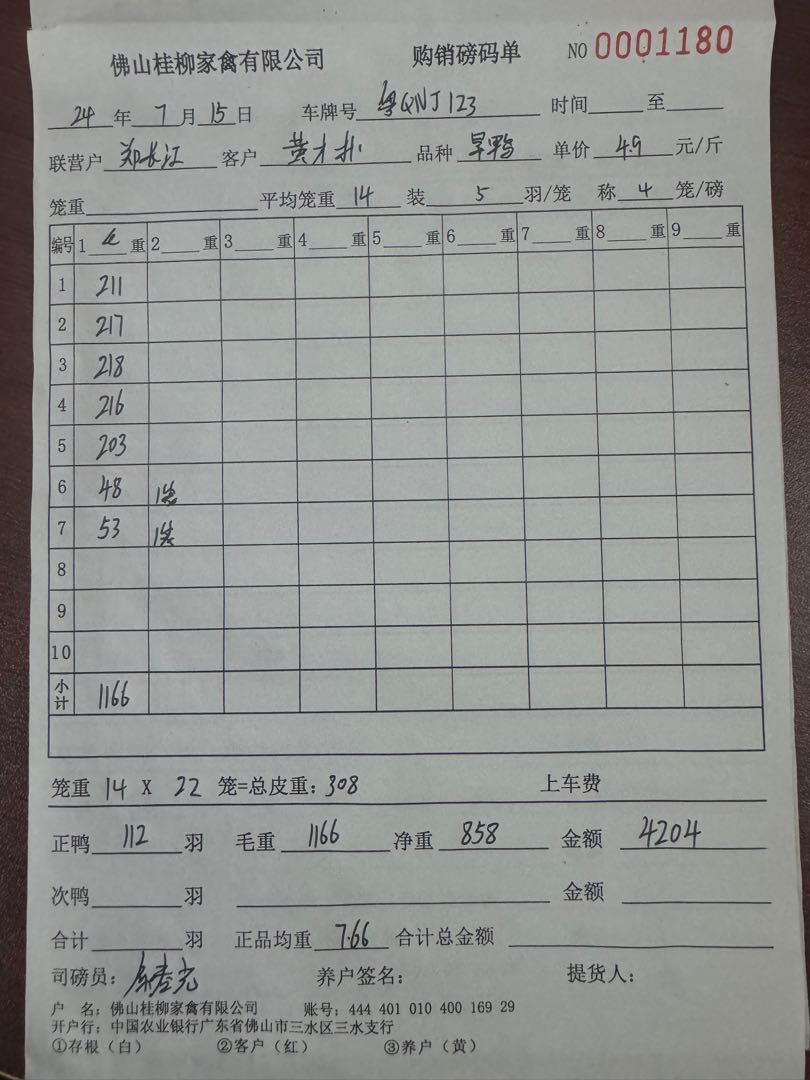 佛山桂柳家禽有限公司 购销磅码单 NO 0001180
24 年 7 月 15 日 车牌号 粤QNJ123 时间 至
联营户 郑长江 客户 黄才 品种 旱鸭 单价 4.9 元/斤
笼重 平均笼重 14 装 5 羽/笼 称 4 笼/磅
编号 1 毛 重 2 重 3 重 4 重 5 重 6 重 7 重 8 重 9 重
1 211
2 217
3 218
4 216
5 203
6 48 1笼
7 53 1笼
8
9
10
小计 1166
笼重 14 X 22 笼=总皮重: 308 上车费
正鸭 112 羽 毛重 1166 净重 858 金额 4204
次鸭 羽 金额
合计 羽 正品均重 7.66 合计总金额
司磅员: 养户签名: 提货人:
户 名: 佛山桂柳家禽有限公司 账号: 444 401 010 400 169 29
开户行: 中国农业银行广东省佛山市三水区三水支行
①存根(白) ②客户(红) ③养户(黄)